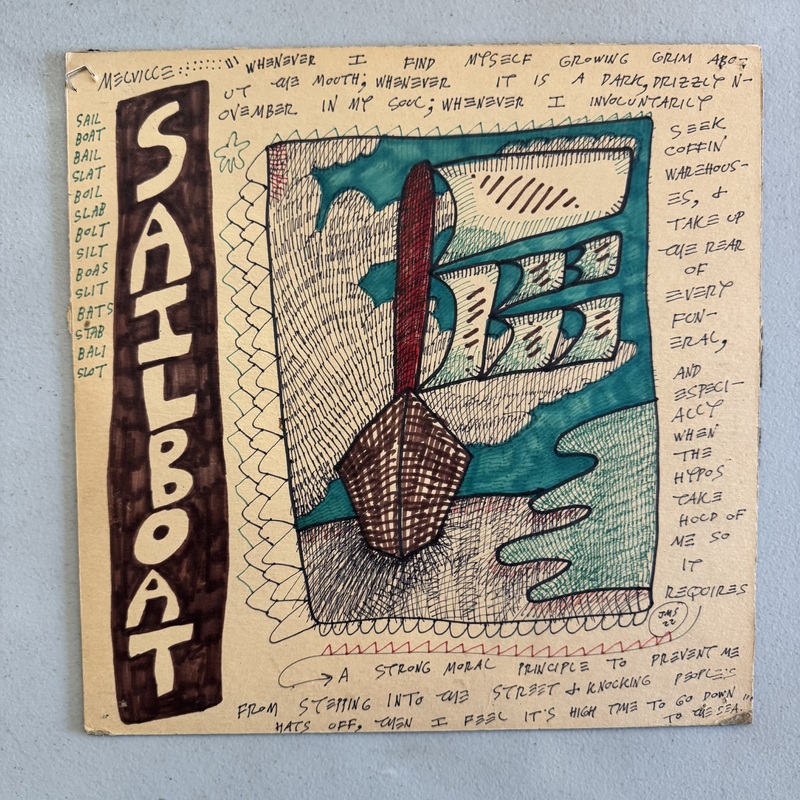 MELVILLE :::::::: "" WHENEVER I FIND MYSELF GROWING GRIM ABO-
UT THE MOUTH; WHENEVER IT IS A DARK, DRIZZLY N-
OVEMBER IN MY SOUL; WHENEVER I INVOLUNTARILY
SEEK
COFFIN
WAREHOUS-
ES, &
TAKE UP
THE REAR
OF
EVERY
FUN-
ERAL,
AND
ESPECI-
ALLY
WHEN
THE
HYPOS
TAKE
HOLD OF
ME SO
IT
REQUIRES
A STRONG MORAL PRINCIPLE TO PREVENT ME
FROM STEPPING INTO THE STREET & KNOCKING PEOPLE'S
HATS OFF, THEN I FEEL IT'S HIGH TIME TO GO DOWN
TO THE SEA. ""
SAIL
BOAT
BAIL
SLAT
BOIL
SLAB
BOLT
SILT
BOAS
SLIT
BATS
STAB
BALI
SLOT
SAILBOAT
JMS
22